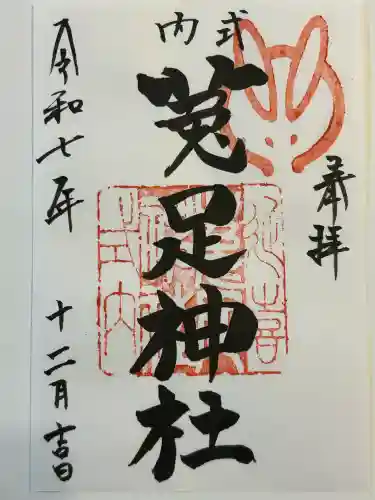 奉拝
式内
菟足神社
令和七年 十二月吉日
延喜
式内